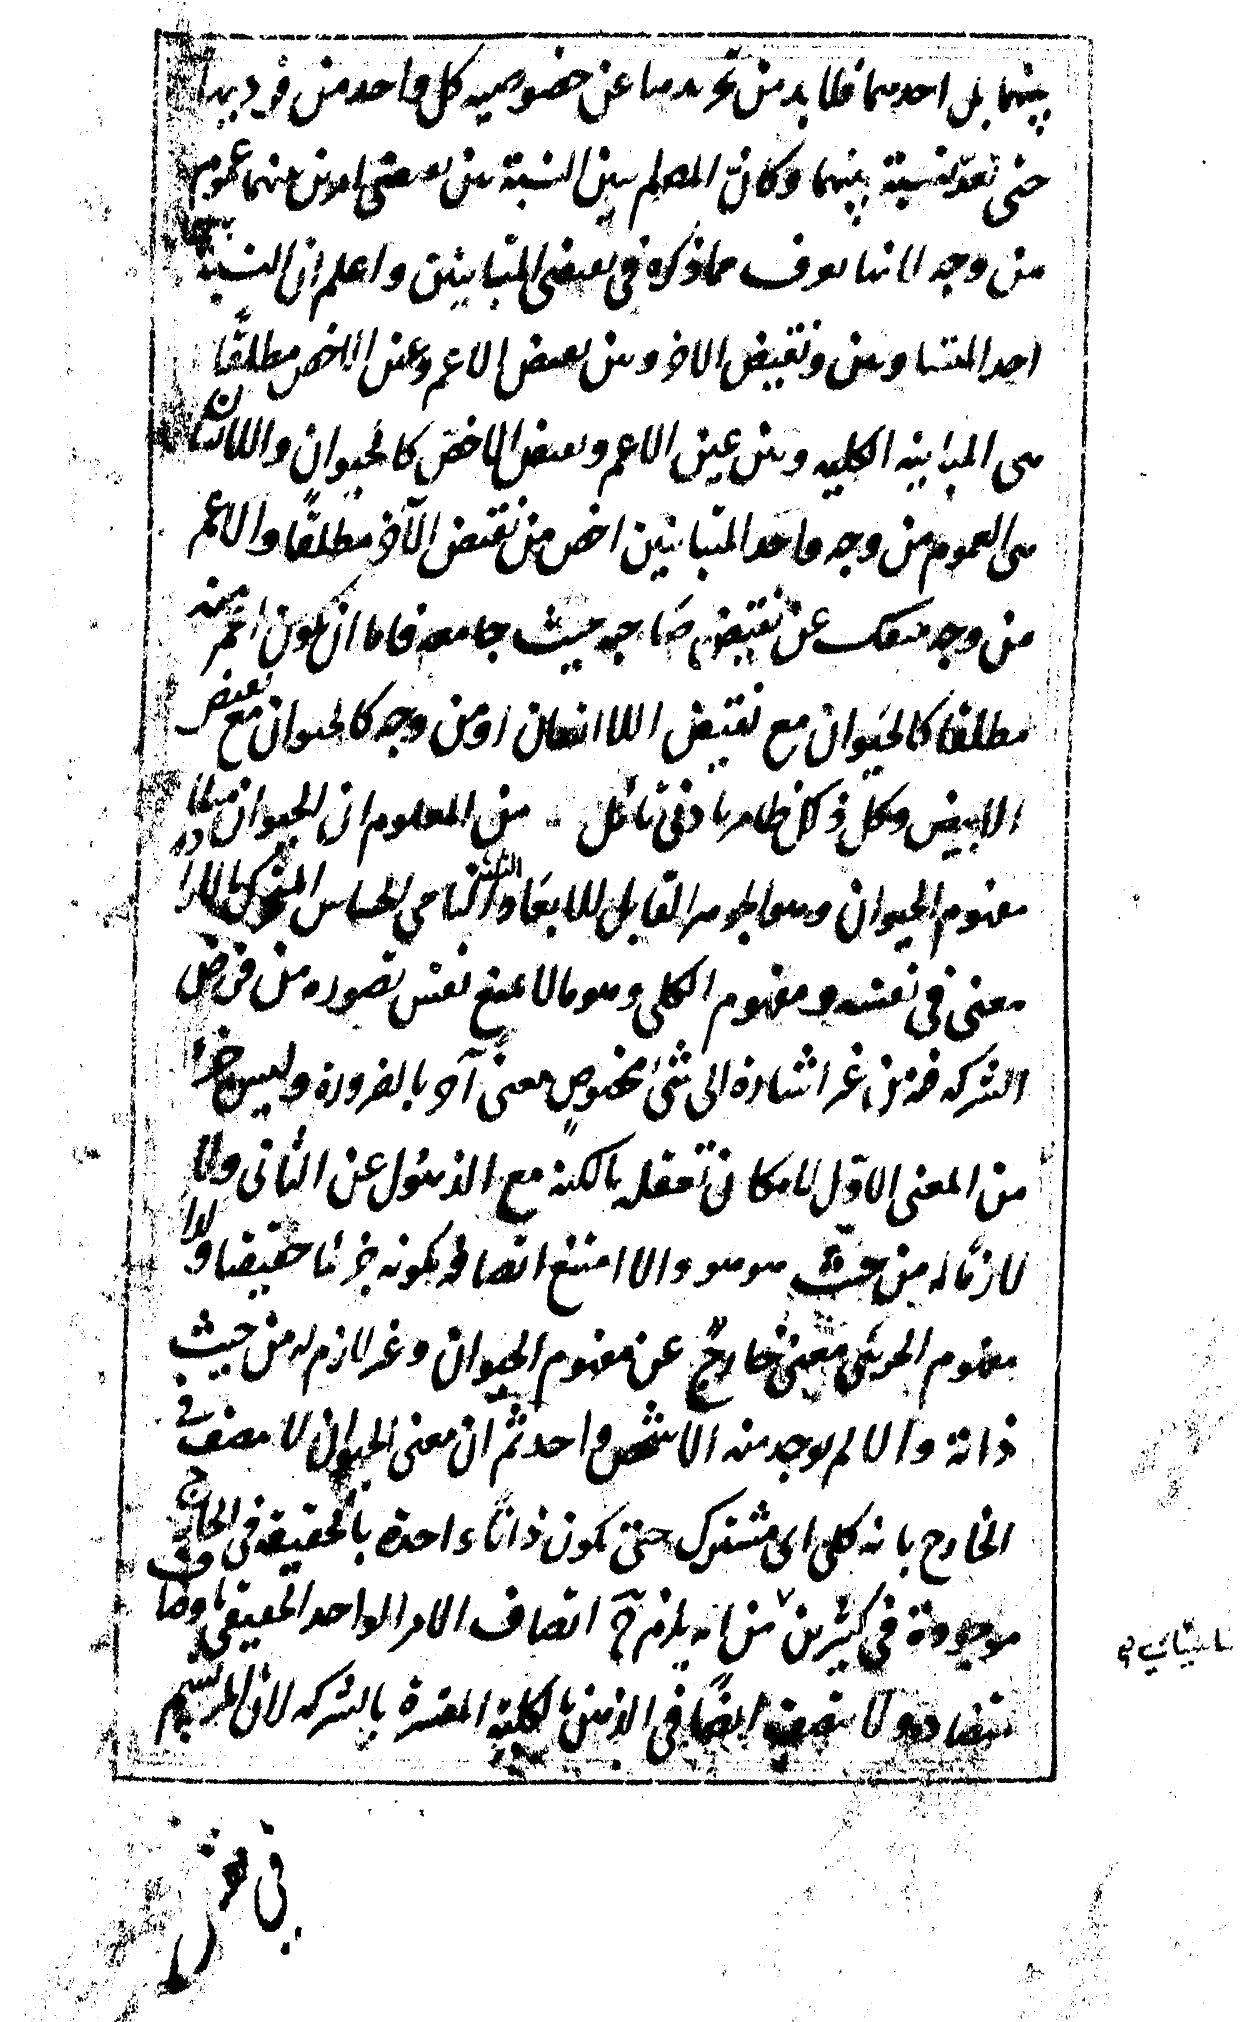 بينهما بل احدهما فلا بد من تجريدها عن خصوصيه كل واحد من فرديها
حتى تعدّ نسبة بينهما وكانّ المصلم يبين النسبة بين نقيضى امرين بينهما عموم
من وجه لانها تعرف مما ذكره فى نقيضى المتباينين واعلم ان النسبة بين
احد المتساويين ونقيض الاخر وبين نقيض الاعم وعين الاخص مطلقًا
هى المباينه الكليه وبين عين الاعم ونقيض الاخصّ كالحيوان واللاانسان
هى العموم من وجه واحد المتباينين اخص من نقيض الآخر مطلقًا والاعم
من وجه ينفك عن نقيض صاحبه حيث جامعه فاما ان يكون اعم منه
مطلقا كالحيوان مع نقيض اللاانسان او من وجه كالحيوان مع نقيض
الابيض وكل ذلك ظاهر بادنى تامّل من المعلوم ان الحيوان مثلا
مفهوم الحيوان وهو الجوهر القابل للابعاد الثلثة النامى الحساس المتحرك بالارادة
معنى فى نفسه ومفهوم الكلى وهو ما لا يمنع نفس تصوره من فرض
الشركه فيه من غير اشارة الى شئ مخصوص معنى آخر بالضرورة وليس جزءا
من المعنى الاوّل لامكان تعقله بالكنه مع الذهول عن الثانى ولا
لازمًا له من حيث هو هو والا امتنع اتصافه بكونه جزئيا حقيقيا ولذا
مفهوم الجزئى معنى خارجٌ عن مفهوم الحيوان وغير لازم له من حيث
ذاته والا لم يوجد منه الا شخص واحد ثم ان معنى الحيوان لا يتصف فى
الخارج بانه كلى اى مشترك حتى يكون ذاتا واحدة بالحقيقه فى الخارج
موجودة فى كثيرين من انه يلزم ح اتصاف الامر الواحد الحقيقى باوصاف
متضاده ولا يتصف ايضًا فى الذهن بالكلية المفسرة بالشركه لان المرتسم
فى نفس